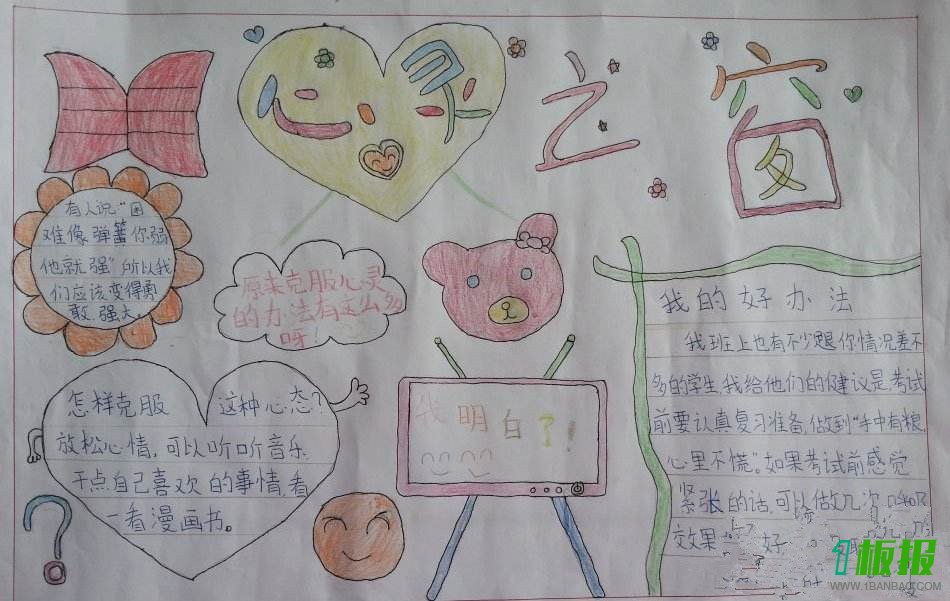 心灵之窗
有人说:“困
难像弹簧你弱
他就强”所以我
们应该变得勇
敢、强大。
原来克服心灵
的办法有这么多
呀!
我的好办法
我班上也有不少跟你情况差不
多的学生,我给他们的建议是考试
前要认真复习准备,做到“手中有粮,
心里不慌”。如果考试前感觉
紧张的话,可以做几次
效果 好
怎样克服 这种心态?
放松心情,可以听听音乐
干点自己喜欢的事情,看
一看漫画书。
我明白了!
板报
WWW.1BANBAO.COM